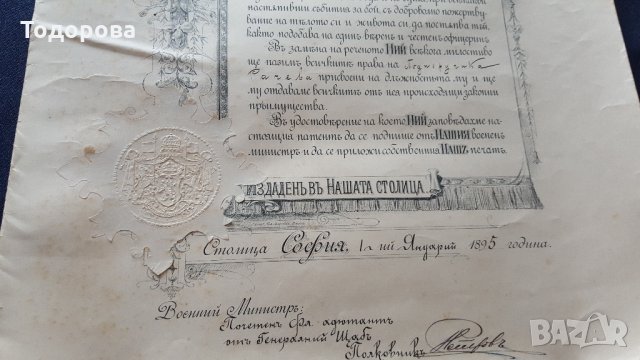 Тодорова
настѫпивши събития за бой, съ доброволно пожертву-
вание на тѣлото си и живота си да постѫпва тъй,
както подобава на единъ вѣренъ и честенъ офицеринъ.
Въ замѣна на реченото НИЙ всѣкога милостиво
ще пазимъ всичкитѣ права на Подпоручика
присвоени на длъжностьта му и ще
му отдаваме всичкитѣ отъ нея происходящи законни
приимущества.
Въ удостовѣрение на което НИЙ заповѣдахме на-
стоящия патентъ да се подпише отъ НАШИЯ военен
министръ и да се приложи собственния НАШЪ печатъ.
ИЗДАДЕНЪ ВЪ НАШАТА СТОЛИЦА.
Столица София, 1-ий Януарий 1895 година.
Военний Министръ:
Почетенъ Фл. адютантъ
отъ Генералний Щабъ
Полковникъ
BAZAR.BG